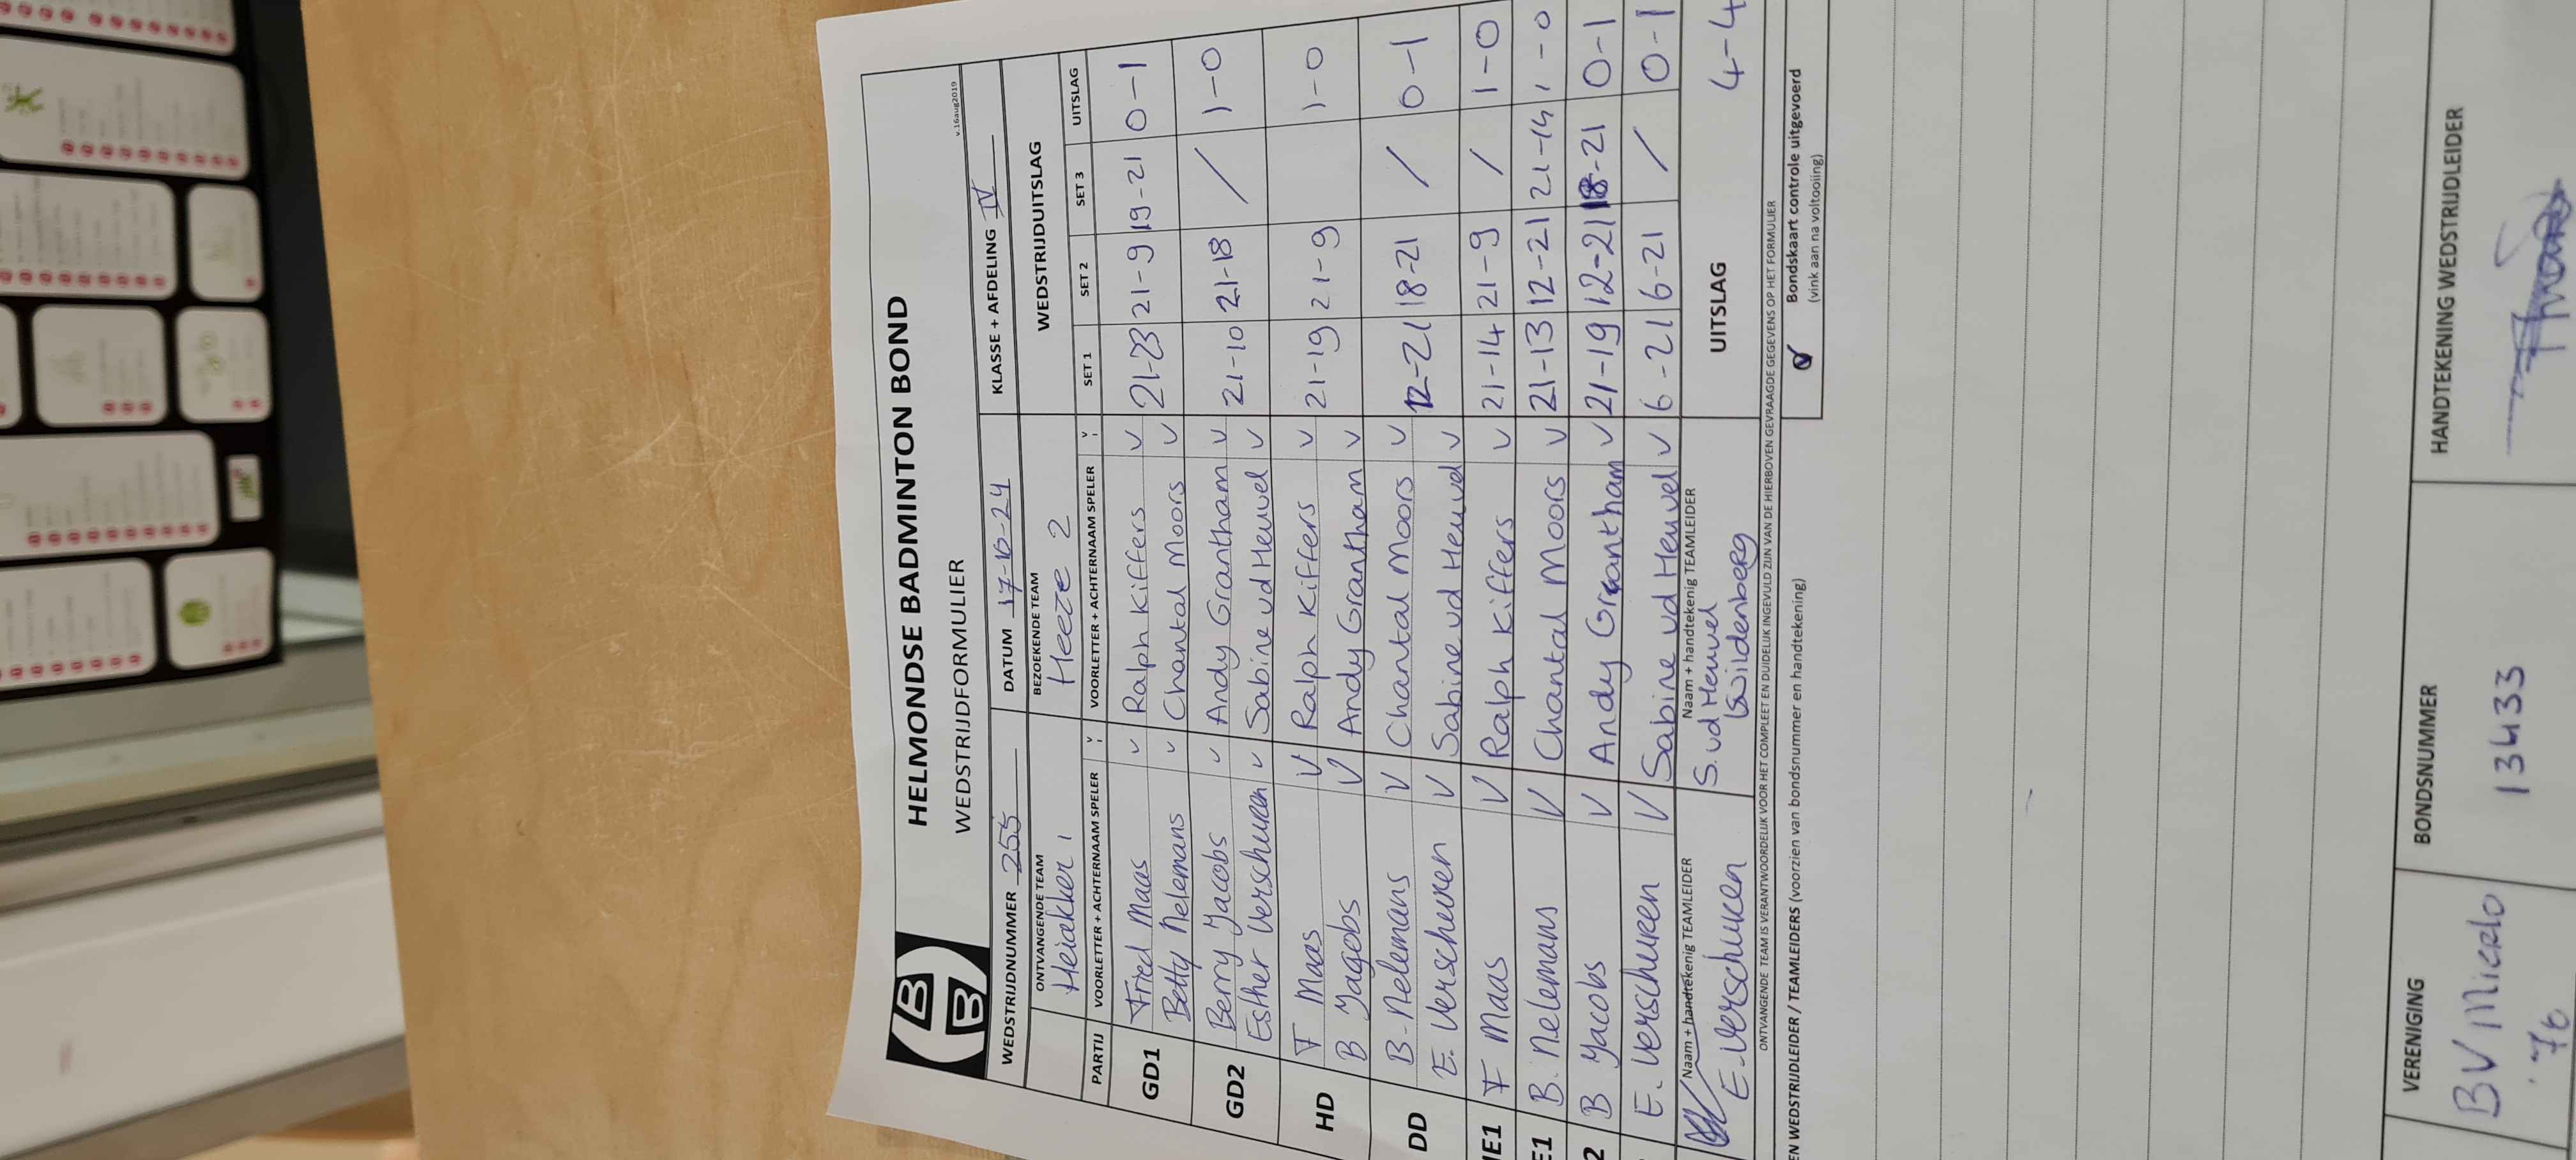 HELMONDSE BADMINTON BOND
WEDSTRIJDFORMULIER
v.16aug2019
WEDSTRIJDNUMMER 255 DATUM 17-10-24 KLASSE + AFDELING IV
ONTVANGENDE TEAM BEZOEKENDE TEAM WEDSTRIJDUITSLAG
Heiakker 1 Heeze 2
PARTIJ VOORLETTER + ACHTERNAAM SPELER V VOORLETTER + ACHTERNAAM SPELER V SET 1 SET 2 SET 3 UITSLAG
GD1 Fried Maas v Ralph Kiffers v 21-23 21-9 19-21 0-1
Betty Nelemans v Chantal Moors v
GD2 Berry Jacobs v Andy Grantham v 21-10 21-18 / 1-0
Esther Verschuren v Sabine vd Heuvel v
HD F Maas V Ralph Kiffers v 21-19 21-9 1-0
B Jagobs V Andy Grantham v
DD B-Nelemans V Chantal Moors v 12-21 18-21 / 0-1
E. Verscheuren V Sabine vd Heuvel v
HE1 F Maas V Ralph Kiffers v 21-14 21-9 / 1-0
E1 B. Nelemans V Chantal Moors v 21-13 12-21 21-14 1-0
2 B Jacobs V Andy Grantham v 21-19 12-21 18-21 0-1
E. Verschureen V Sabine vd Heuvel v 6-21 6-21 / 0-1
Naam + handtekenig TEAMLEIDER Naam + handtekenig TEAMLEIDER UITSLAG 4-4
E. Verschuren S. vd Heuvel
Wildenberg
ONTVANGENDE TEAM IS VERANTWOORDELIJK VOOR HET COMPLEET EN DUIDELIJK INGEVULD ZIJN VAN DE HIERBOVEN GEVRAAGDE GEGEVENS OP HET FORMULIER
EN WEDSTRIJDLEIDER / TEAMLEIDERS (voorzien van bondsnummer en handtekening)
Bondskaart controle uitgevoerd
(vink aan na voltooiing)
VERENIGING BONDSNUMMER HANDTEKENING WEDSTRIJDLEIDER
BV Mierlo 13433
'76